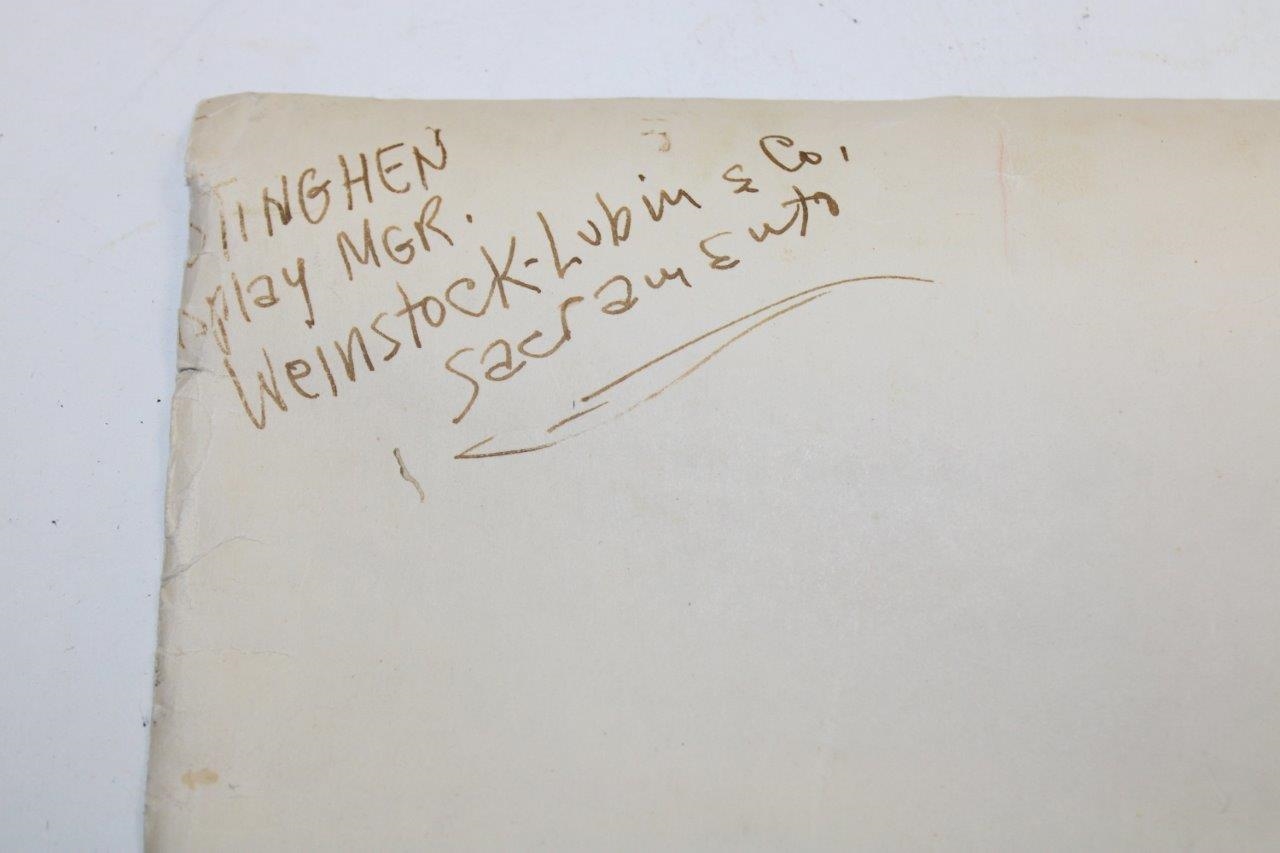 STINGHEN
splay MGR.
Weinstock-Lubin & Co.
Sacramento